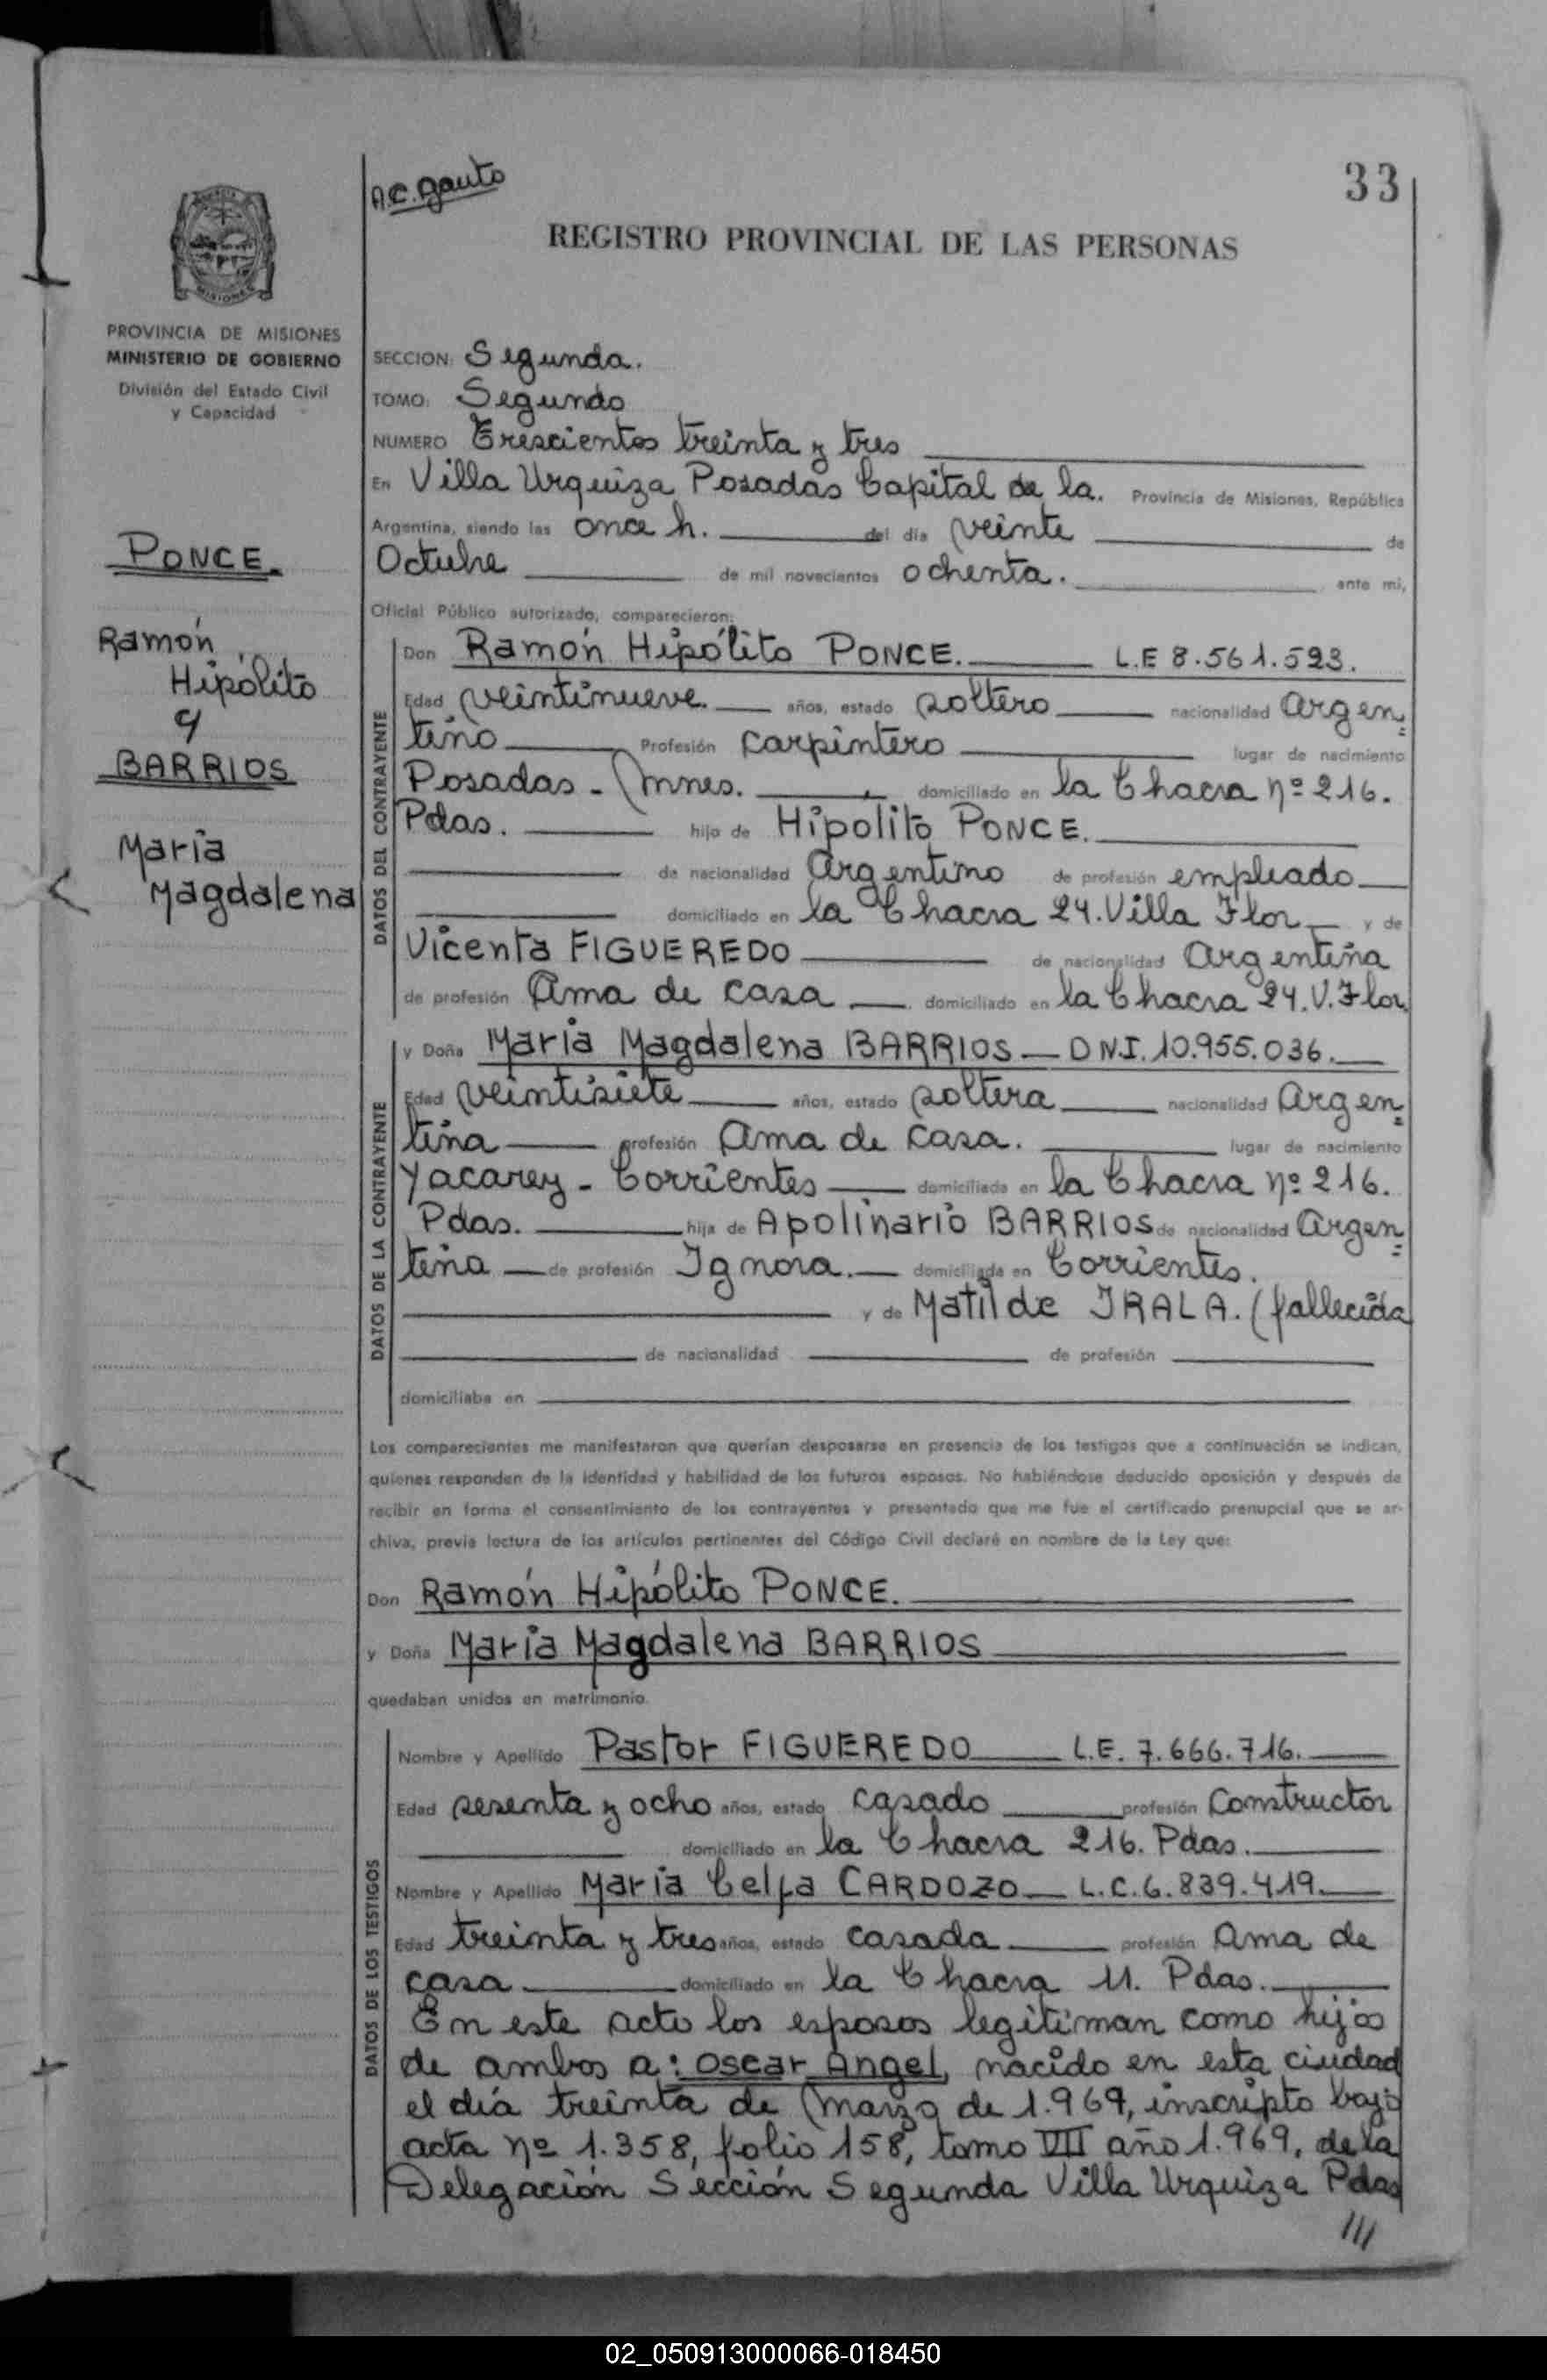 33
A.C. Gauto
REGISTRO PROVINCIAL DE LAS PERSONAS
MISIONES
PROVINCIA DE MISIONES
MINISTERIO DE GOBIERNO
División del Estado Civil
y Capacidad
PONCE.
Ramón
Hipólito
y
BARRIOS
María
Magdalena
SECCION: Segunda.
TOMO: Segundo
NUMERO Trescientos treinta y tres
En Villa Urquiza Posadas Capital de la. Provincia de Misiones, República
Argentina, siendo las once h. del día veinte de
Octubre de mil novecientos ochenta. ante mi,
Oficial Público autorizado, comparecieron:
DATOS DEL CONTRAYENTE
Don Ramón Hipólito PONCE. L.E 8.561.523.
Edad veintinueve. años, estado soltero nacionalidad argen=
tino Profesión carpintero lugar de nacimiento
Posadas - Mnes. domiciliado en la Chacra nº 216.
Pdas. hijo de Hipolito PONCE.
de nacionalidad argentino de profesión empleado
domiciliado en la Chacra 24. Villa Flor y de
Vicenta FIGUEREDO de nacionalidad argentina
de profesión ama de casa domiciliado en la Chacra 24. V. Flor
DATOS DE LA CONTRAYENTE
y Doña María Magdalena BARRIOS - DNI. 10.955.036.
Edad veintisiete años, estado soltera nacionalidad argen=
tina profesión ama de casa. lugar de nacimiento
Yacarey - Corrientes domiciliada en la Chacra nº 216.
Pdas. hija de Apolinario BARRIOS de nacionalidad argen=
tina de profesión Ignora. domiciliada en Corrientes.
y de Matilde IRALA. (fallecida
de nacionalidad de profesión
domiciliaba en
Los comparecientes me manifestaron que querían desposarse en presencia de los testigos que a continuación se indican,
quienes responden de la identidad y habilidad de los futuros esposos. No habiéndose deducido oposición y después de
recibir en forma el consentimiento de los contrayentes y presentado que me fue el certificado prenupcial que se ar-
chiva, previa lectura de los artículos pertinentes del Código Civil declaré en nombre de la Ley que:
Don Ramón Hipólito PONCE.
y Doña María Magdalena BARRIOS
quedaban unidos en matrimonio.
DATOS DE LOS TESTIGOS
Nombre y Apellido Pastor FIGUEREDO L.E. 7.666.716.
Edad sesenta y ocho años, estado casado profesión Constructor
domiciliado en la Chacra 216. Pdas.
Nombre y Apellido María CARDOZO L.C. 6.839.419.
Edad treinta y tres años, estado casada profesión ama de
casa domiciliado en la Chacra 11. Pdas.
En este acto los esposos legitiman como hijos
de ambos a: Oscar Angel, nacido en esta ciudad
el día treinta de marzo de 1.969, inscripto bajo
acta nº 1.358, folio 158, tomo VIII año 1.969, de la
Delegación Sección Segunda Villa Urquiza Pdas
///
02_050913000066-018450